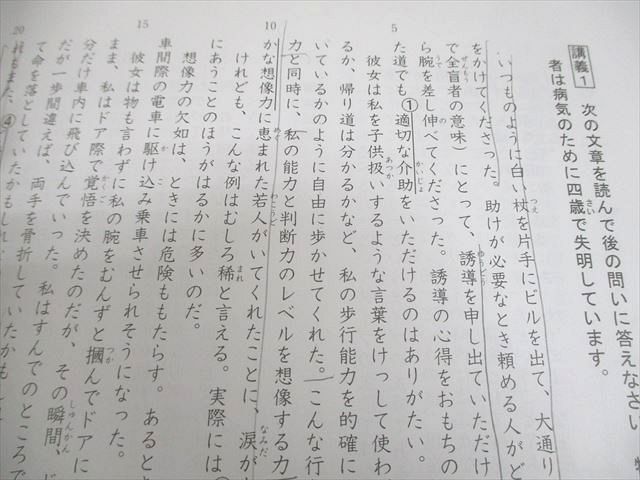 講義1 次の文章を読んで後の問いに答えなさい
者は病気のために四歳で失明しています。
いつものように白い杖を片手にビルを出て、大通り
をかけてくださった。助けが必要なとき頼める人がど
で全盲者の意味)にとって、誘導を申し出ていただけ
ら腕を差し伸べてくださった。誘導の心得をおもちの
5
た道でも①適切な介助をいただけるのはありがたい。
彼女は私を子供扱いするような言葉をけっして使わ
るか、帰り道は分かるかなど、私の歩行能力を的確に
いているかのように自由に歩かせてくれた。こんな行
力と同時に、私の能力と判断力のレベルを想像する力
10
かな想像力に恵まれた若人がいてくれたことに、涙が
けれども、こんな例はむしろ稀と言える。実際には
にあうことのほうがはるかに多いのだ。
想像力の欠如は、ときには危険ももたらす。あると
車間際の電車に駆け込み乗車させられそうになった。
15
彼女は物も言わずに私の腕をむんずと摑んでドアに
まま、私はドア際で覚悟を決めたのだが、その瞬間、
分だけ車内に飛び込んでいった。私はすんでのところで
だが一歩間違えば、両手を骨折していたかもし
て命を落としていたかもしれ
20
れもまた、④